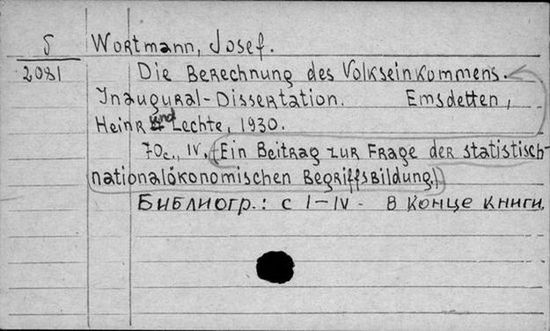 5 Wortmann, Josef.
2081 Die Berechnung des Volkseinkommens.
Inaugural-Dissertation. Emsdetten,
Heinr und Lechte, 1930.
70c., IV. (Ein Beitrag zur Frage der statistisch-
nationalökonomischen Begriffsbildung)
Библиогр.: с I–IV - в конце книги.